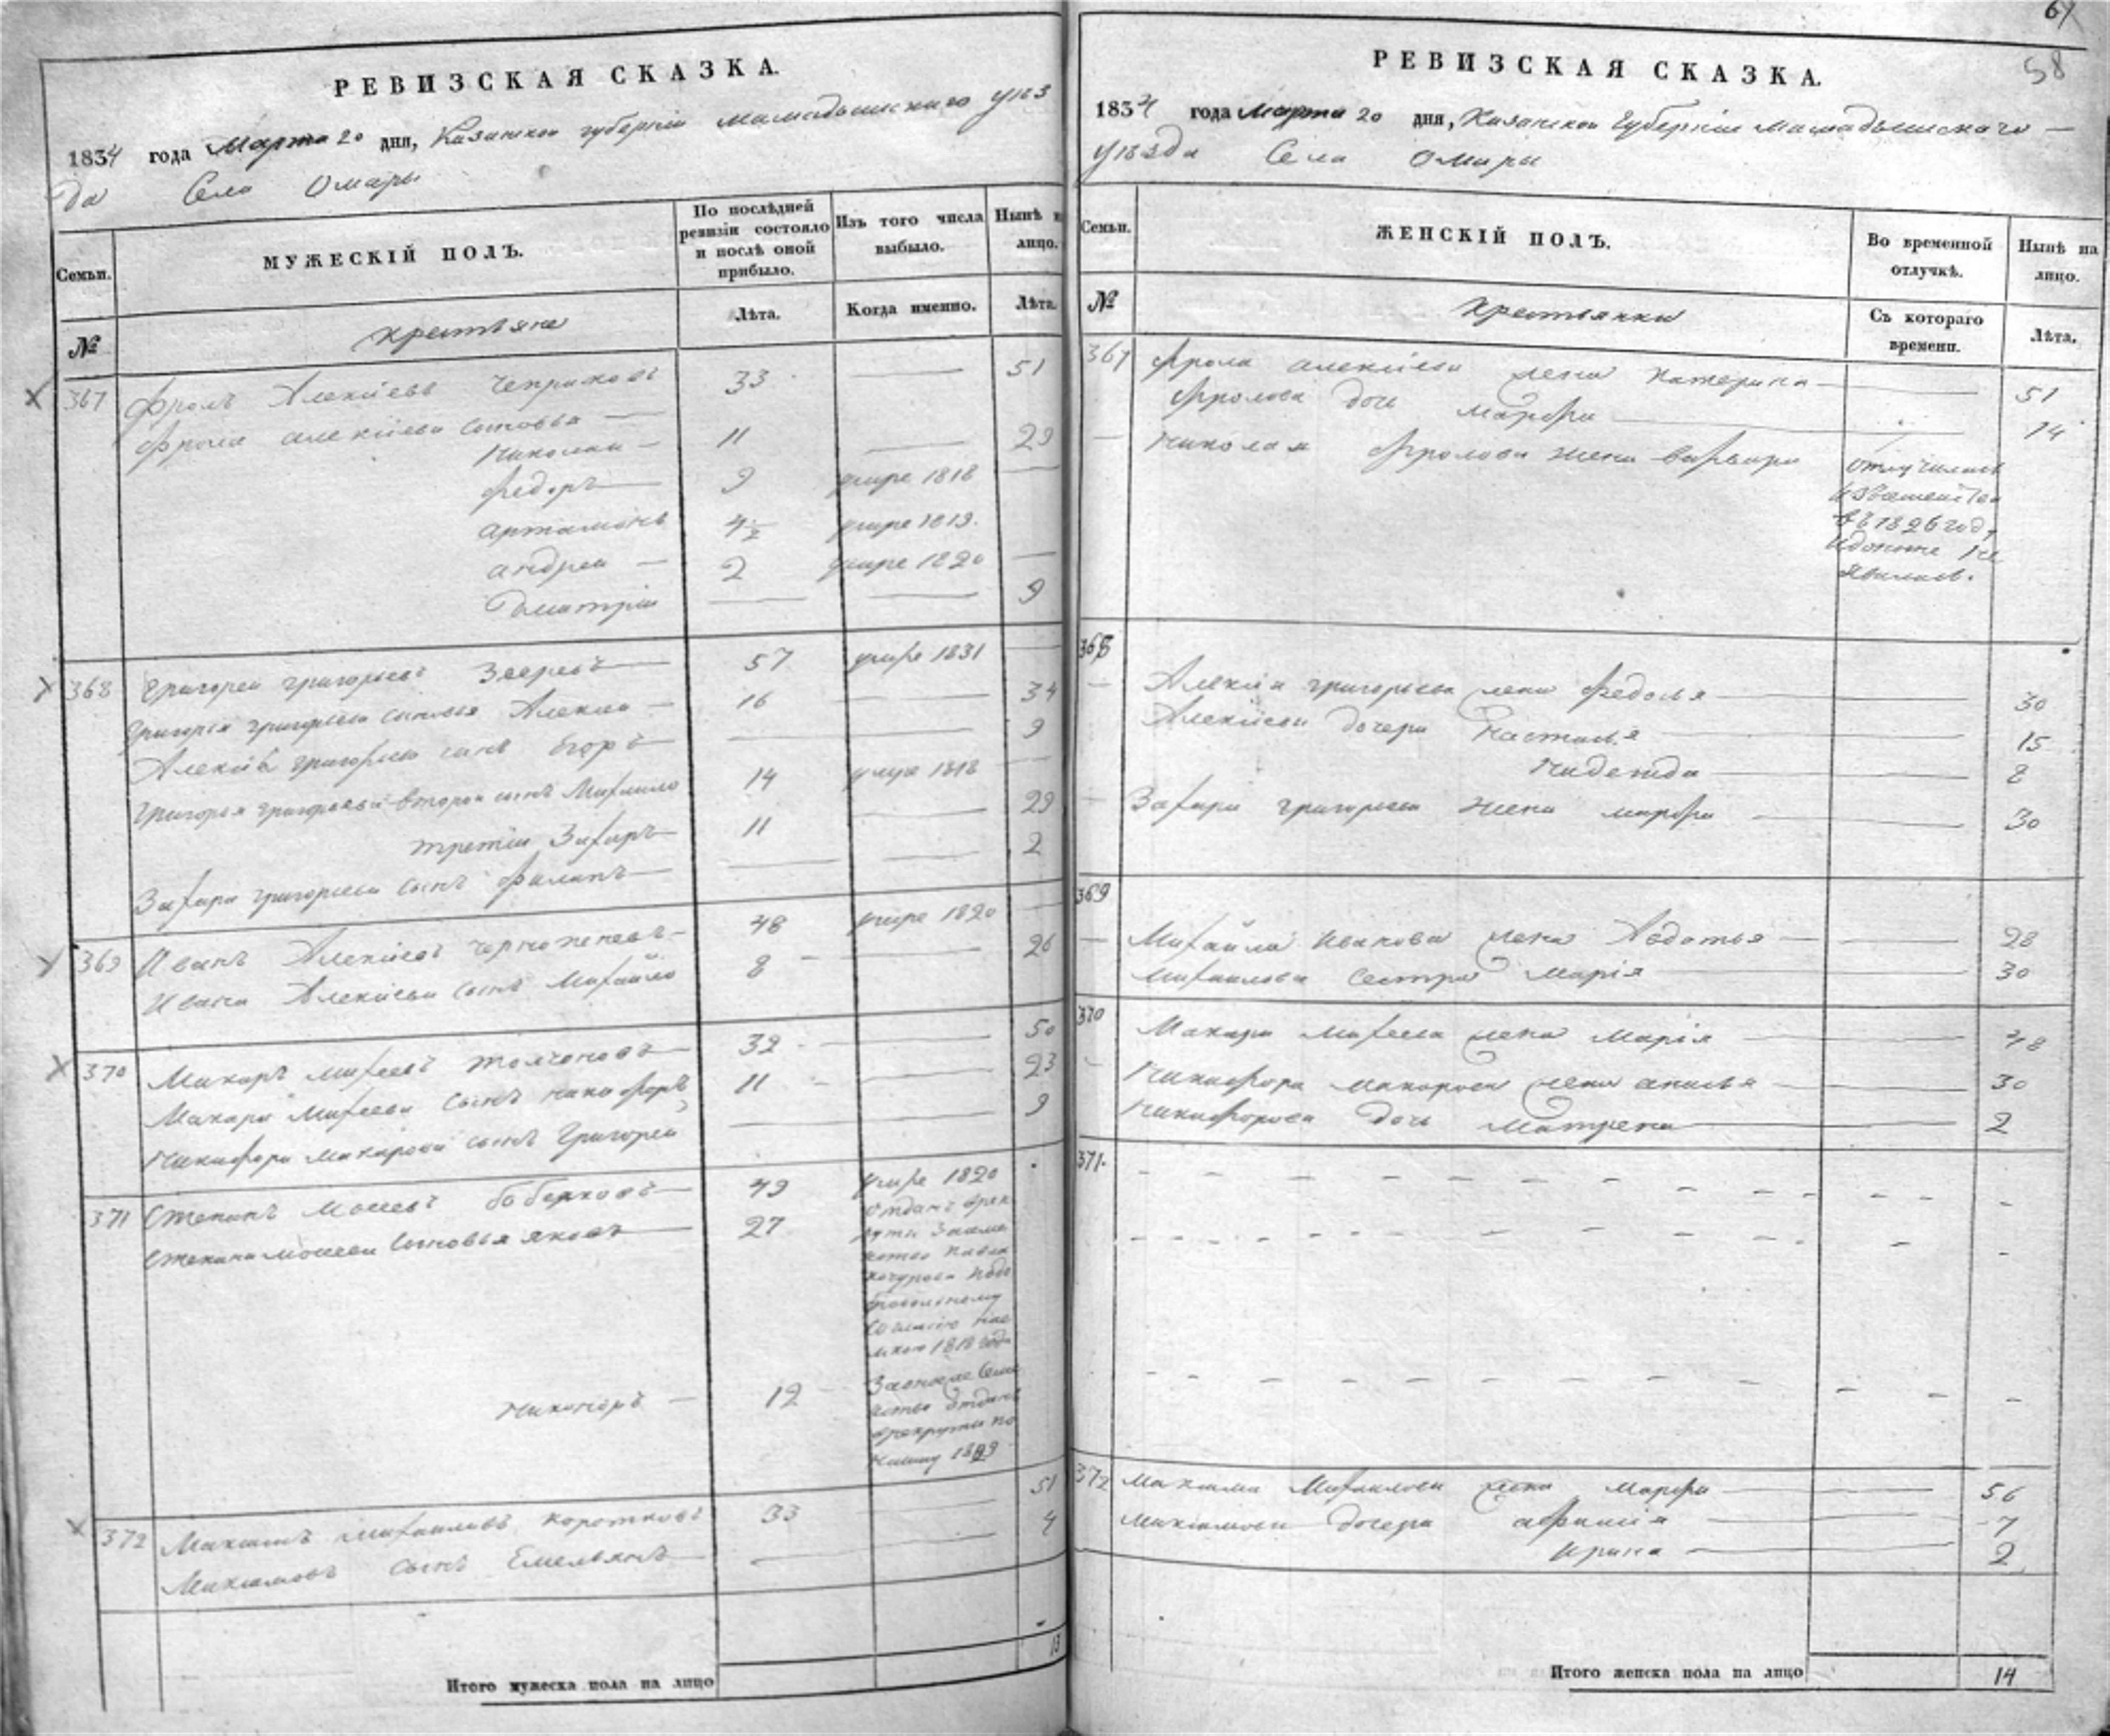 РЕВИЗСКАЯ СКАЗКА.
1834 года Марта 20 дня, Казанской губернiи Мамадышскаго уѣз
да Села Омары
Семьи. МУЖЕСКIЙ ПОЛЪ. По послѣдней ревизiи состояло и послѣ оной прибыло. Изъ того числа выбыло. Нынѣ на лицо.
№ крестьяне Лѣта. Когда именно. Лѣта.
367 Фролъ Алексѣевъ 33 — 51
Фрола Алексѣева сыновья —
Николай — 11 — 29
Федоръ — 9 умре 1818 —
Артамонъ 4½ умре 1819.
Андрей — 2 умре 1820 —
Дмитрiй — — 9
368 Григорей Григорьевъ Зверевъ — 57 умре 1831 —
Григорья Григорьева сыновья Алексей — 16 — 34
Алексѣя Григорьева сынъ Егоръ — — — 9
Григорья Григорьева второй сынъ Михайло 14 1818 —
третiй Захаръ — 11 — 29
Захара Григорьева сынъ Филипъ — — — 2
369 Иванъ Алексѣевъ — 48 умре 1820 —
Ивана Алексѣева сынъ Михайло 8 — — 26
370 Макаръ Михеевъ Толченовъ — 32 — — 50
Макара Михеева сынъ Никифоръ 11 — — 23
Никифора Макарова сынъ Григорей — — 9
371 Степанъ Мосеевъ Боберковъ — 49 умре 1820
Степана Мосеева сыновья Яковъ — 27 отданъ в рек
руты
1818 года
Никоноръ — 12 —
отданъ
в рекруты по
372 Максимъ Михайловъ Коротковъ 33 — 51
Максимовъ сынъ Емельянъ — — — 4
Итого мужеска пола на лицо 13
61
58
РЕВИЗСКАЯ СКАЗКА.
1834 года Марта 20 дня, Казанской Губернiи Мамадышскаго —
уѣзда Села Омары
Семьи. ЖЕНСКIЙ ПОЛЪ. Во временной отлучкѣ. Нынѣ на лицо.
№ Крестьянки Съ котораго времени. Лѣта.
367 Фрола Алексѣева жена Катерина — — 51
Фролова дочь Марфа — — 14
— Николая Фролова жена Варвара отлучилась
в 1826 году
и доныне не
явилась.
368
— Алексѣя Григорьева жена Федосья — — 30
Алексѣевы дочери Настасья — — 15
Надежда — — 8
— Захара Григорьева жена Марфа — — 30
369
— Михайла Иванова жена Авдотья — — 28
Михайлова сестра Марiя — — 30
370 Макара Михеева жена Марiя — — 48
— Никифора Макарова жена — — 30
Никифорова дочь Матрена — — 2
371.
372 Максима Михайлова жена Марфа — — 56
Максимовы дочери — — 7
Ирина — — 2
Итого женска пола на лицо 14